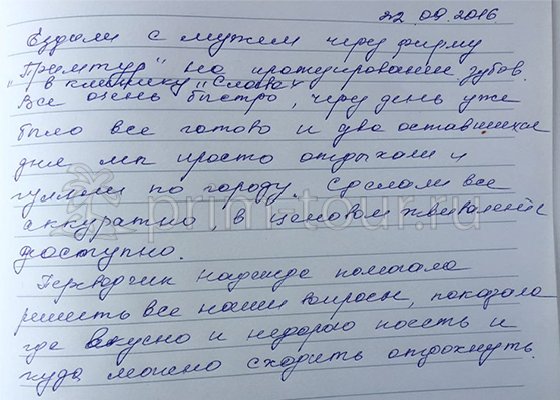 22 09.2016
Ездили с мужем через фирму
"Примтур" на протезирование зубов.
в клинику "Слава"
Все очень быстро, через день уже
было все готово и два оставшихся
дня мы просто отдыхали и
гуляли по городу. Сделали все
аккуратно, в ценовом эквиваленте
доступно.
Переводчик Надежда помогала
решить все наши вопросы, показала
где вкусно и недорого поесть и
куда можно сходить отдохнуть.
prim-tour.ru